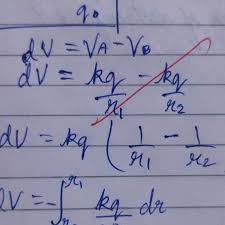 q₀
dV = VA - VB
dV = kq/r₁ - kq/r₂
dV = kq ( 1/r₁ - 1/r₂
dV = -∫ r₁ kq dr